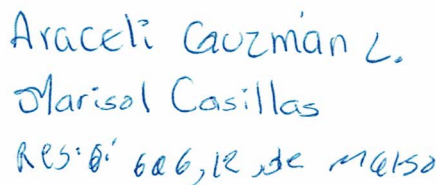 Araceli Gauzmán L.
Marisol Casillas
Resibí 606, 12, de Marso